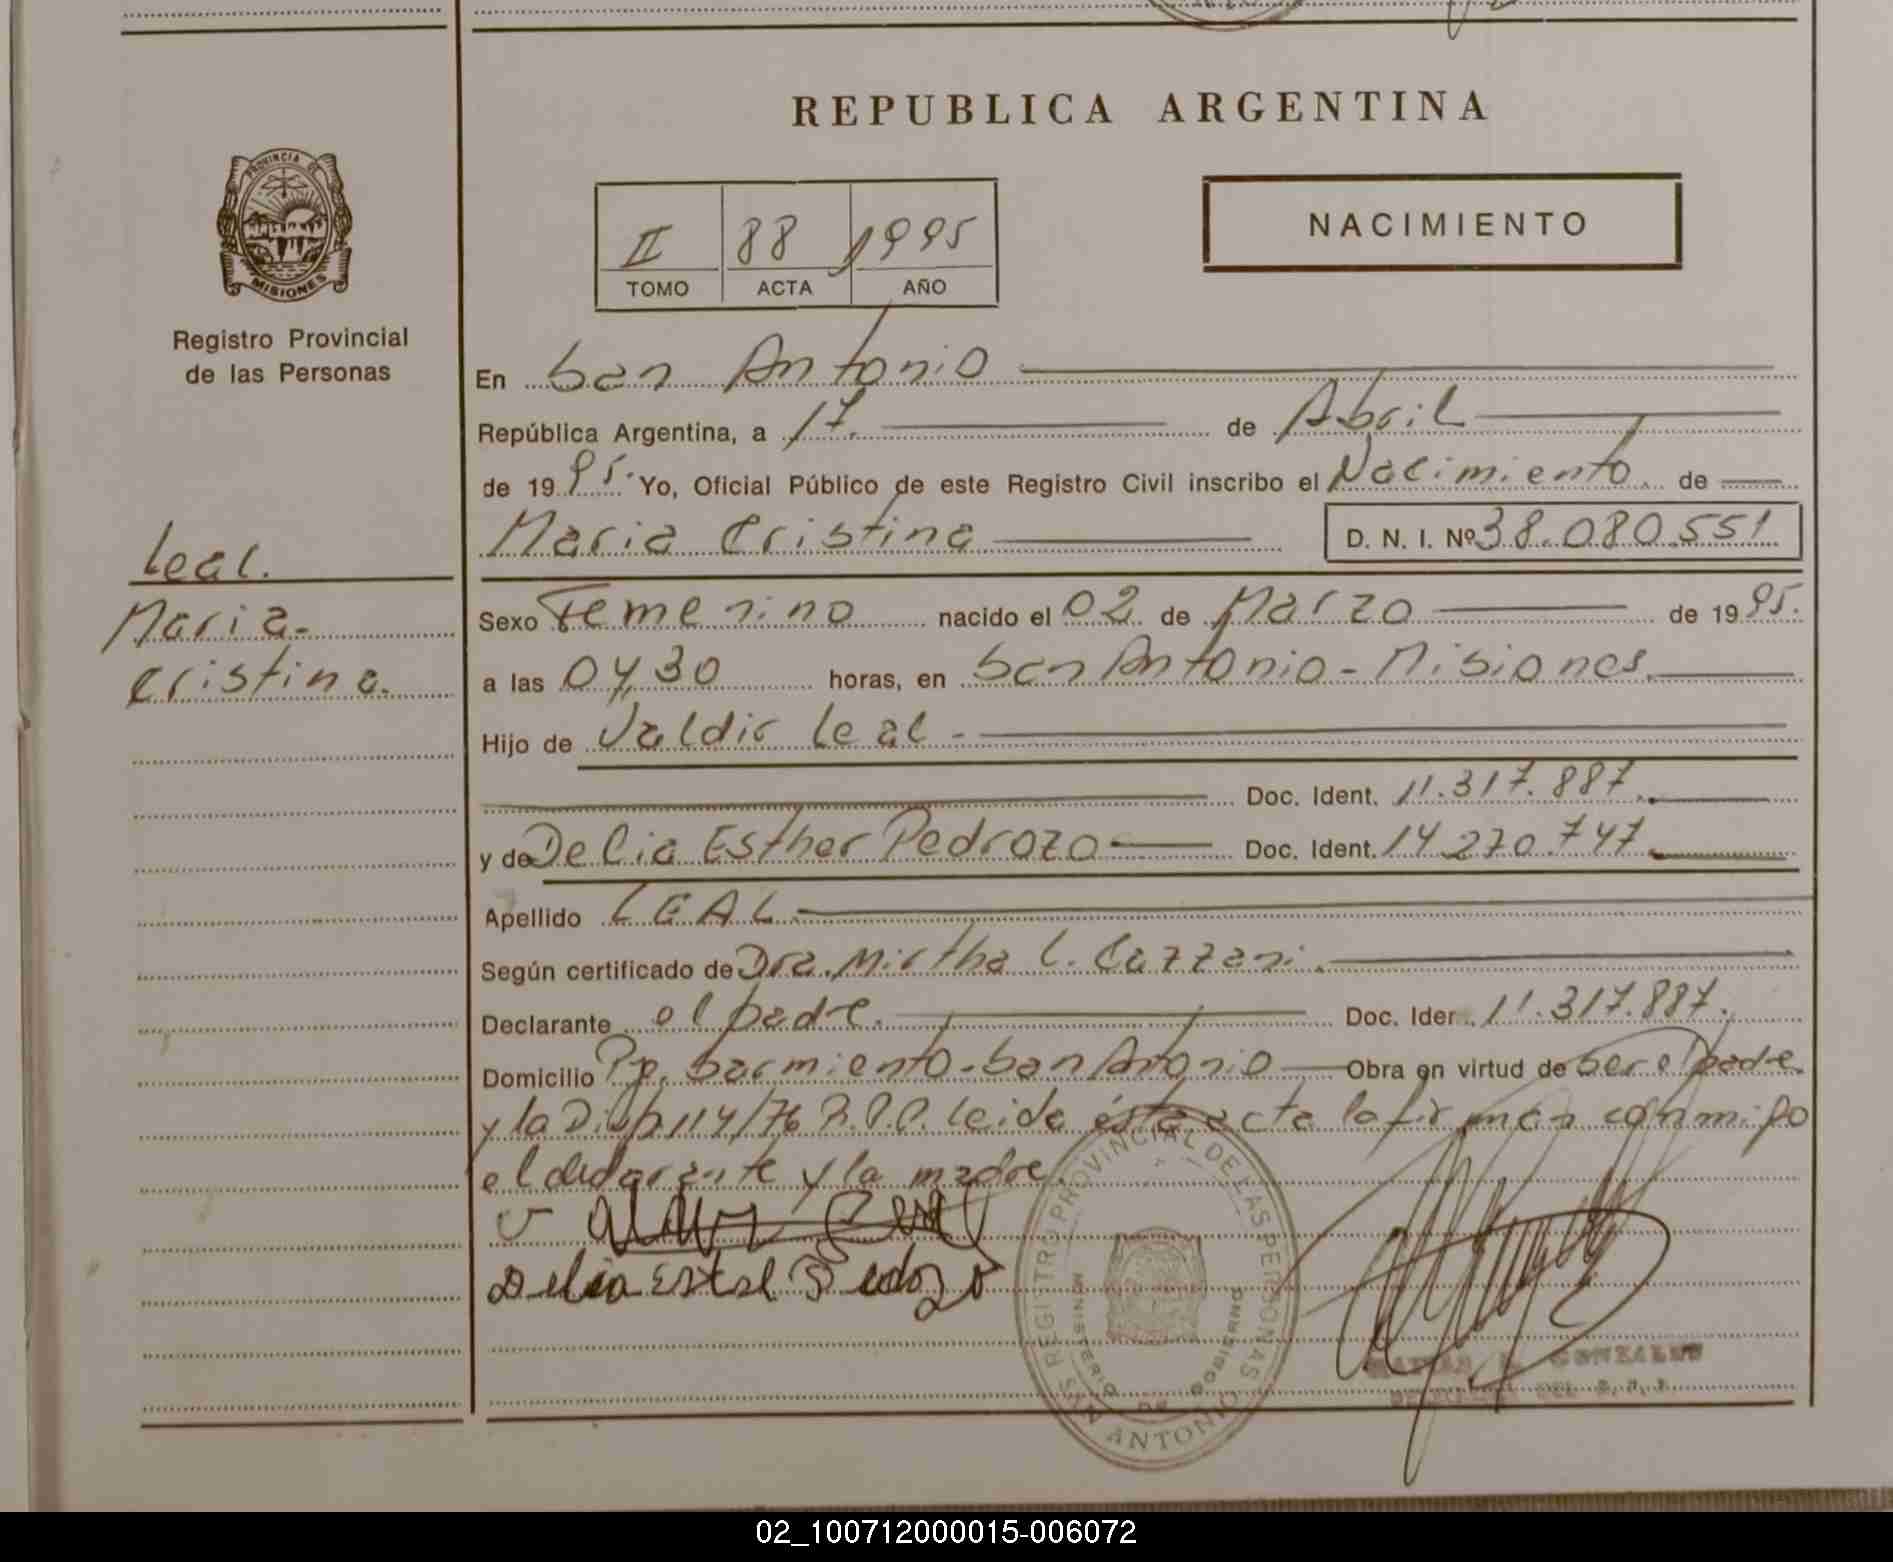 REPUBLICA ARGENTINA
PROVINCIA DE
MISIONES
Registro Provincial
de las Personas
II 88 1995
TOMO ACTA AÑO
NACIMIENTO
En San Antonio
República Argentina, a 17. de Abril
de 1995. Yo, Oficial Público de este Registro Civil inscribo el Nacimiento de
Maria Cristina D. N. I. Nº 38.080.551
Leal.
Maria
Cristina.
Sexo Femenino nacido el 02 de Marzo de 1995.
a las 04,30 horas, en San Antonio - Misiones.
Hijo de Valdir Leal -
Doc. Ident. 11.317.887.
y de Delia Esther Pedrozo Doc. Ident. 14.270.747.
Apellido LEAL
Según certificado de Dra. Mirtha C. Cazzani.
Declarante el padre. Doc. Iden. 11.317.887.
Domicilio Pje. Sarmiento - San Antonio Obra en virtud de ser el padre
y la Disp. 114/76 R.P.P. Leida ésta acta la firman conmigo
el declarante y la madre.
Leal
Delia Pedozo
REGISTRO PROVINCIAL DE LAS PERSONAS
MINISTERIO DE GOBIERNO
SAN ANTONIO
GONZALEZ
DEL R. P. P.
02_100712000015-006072